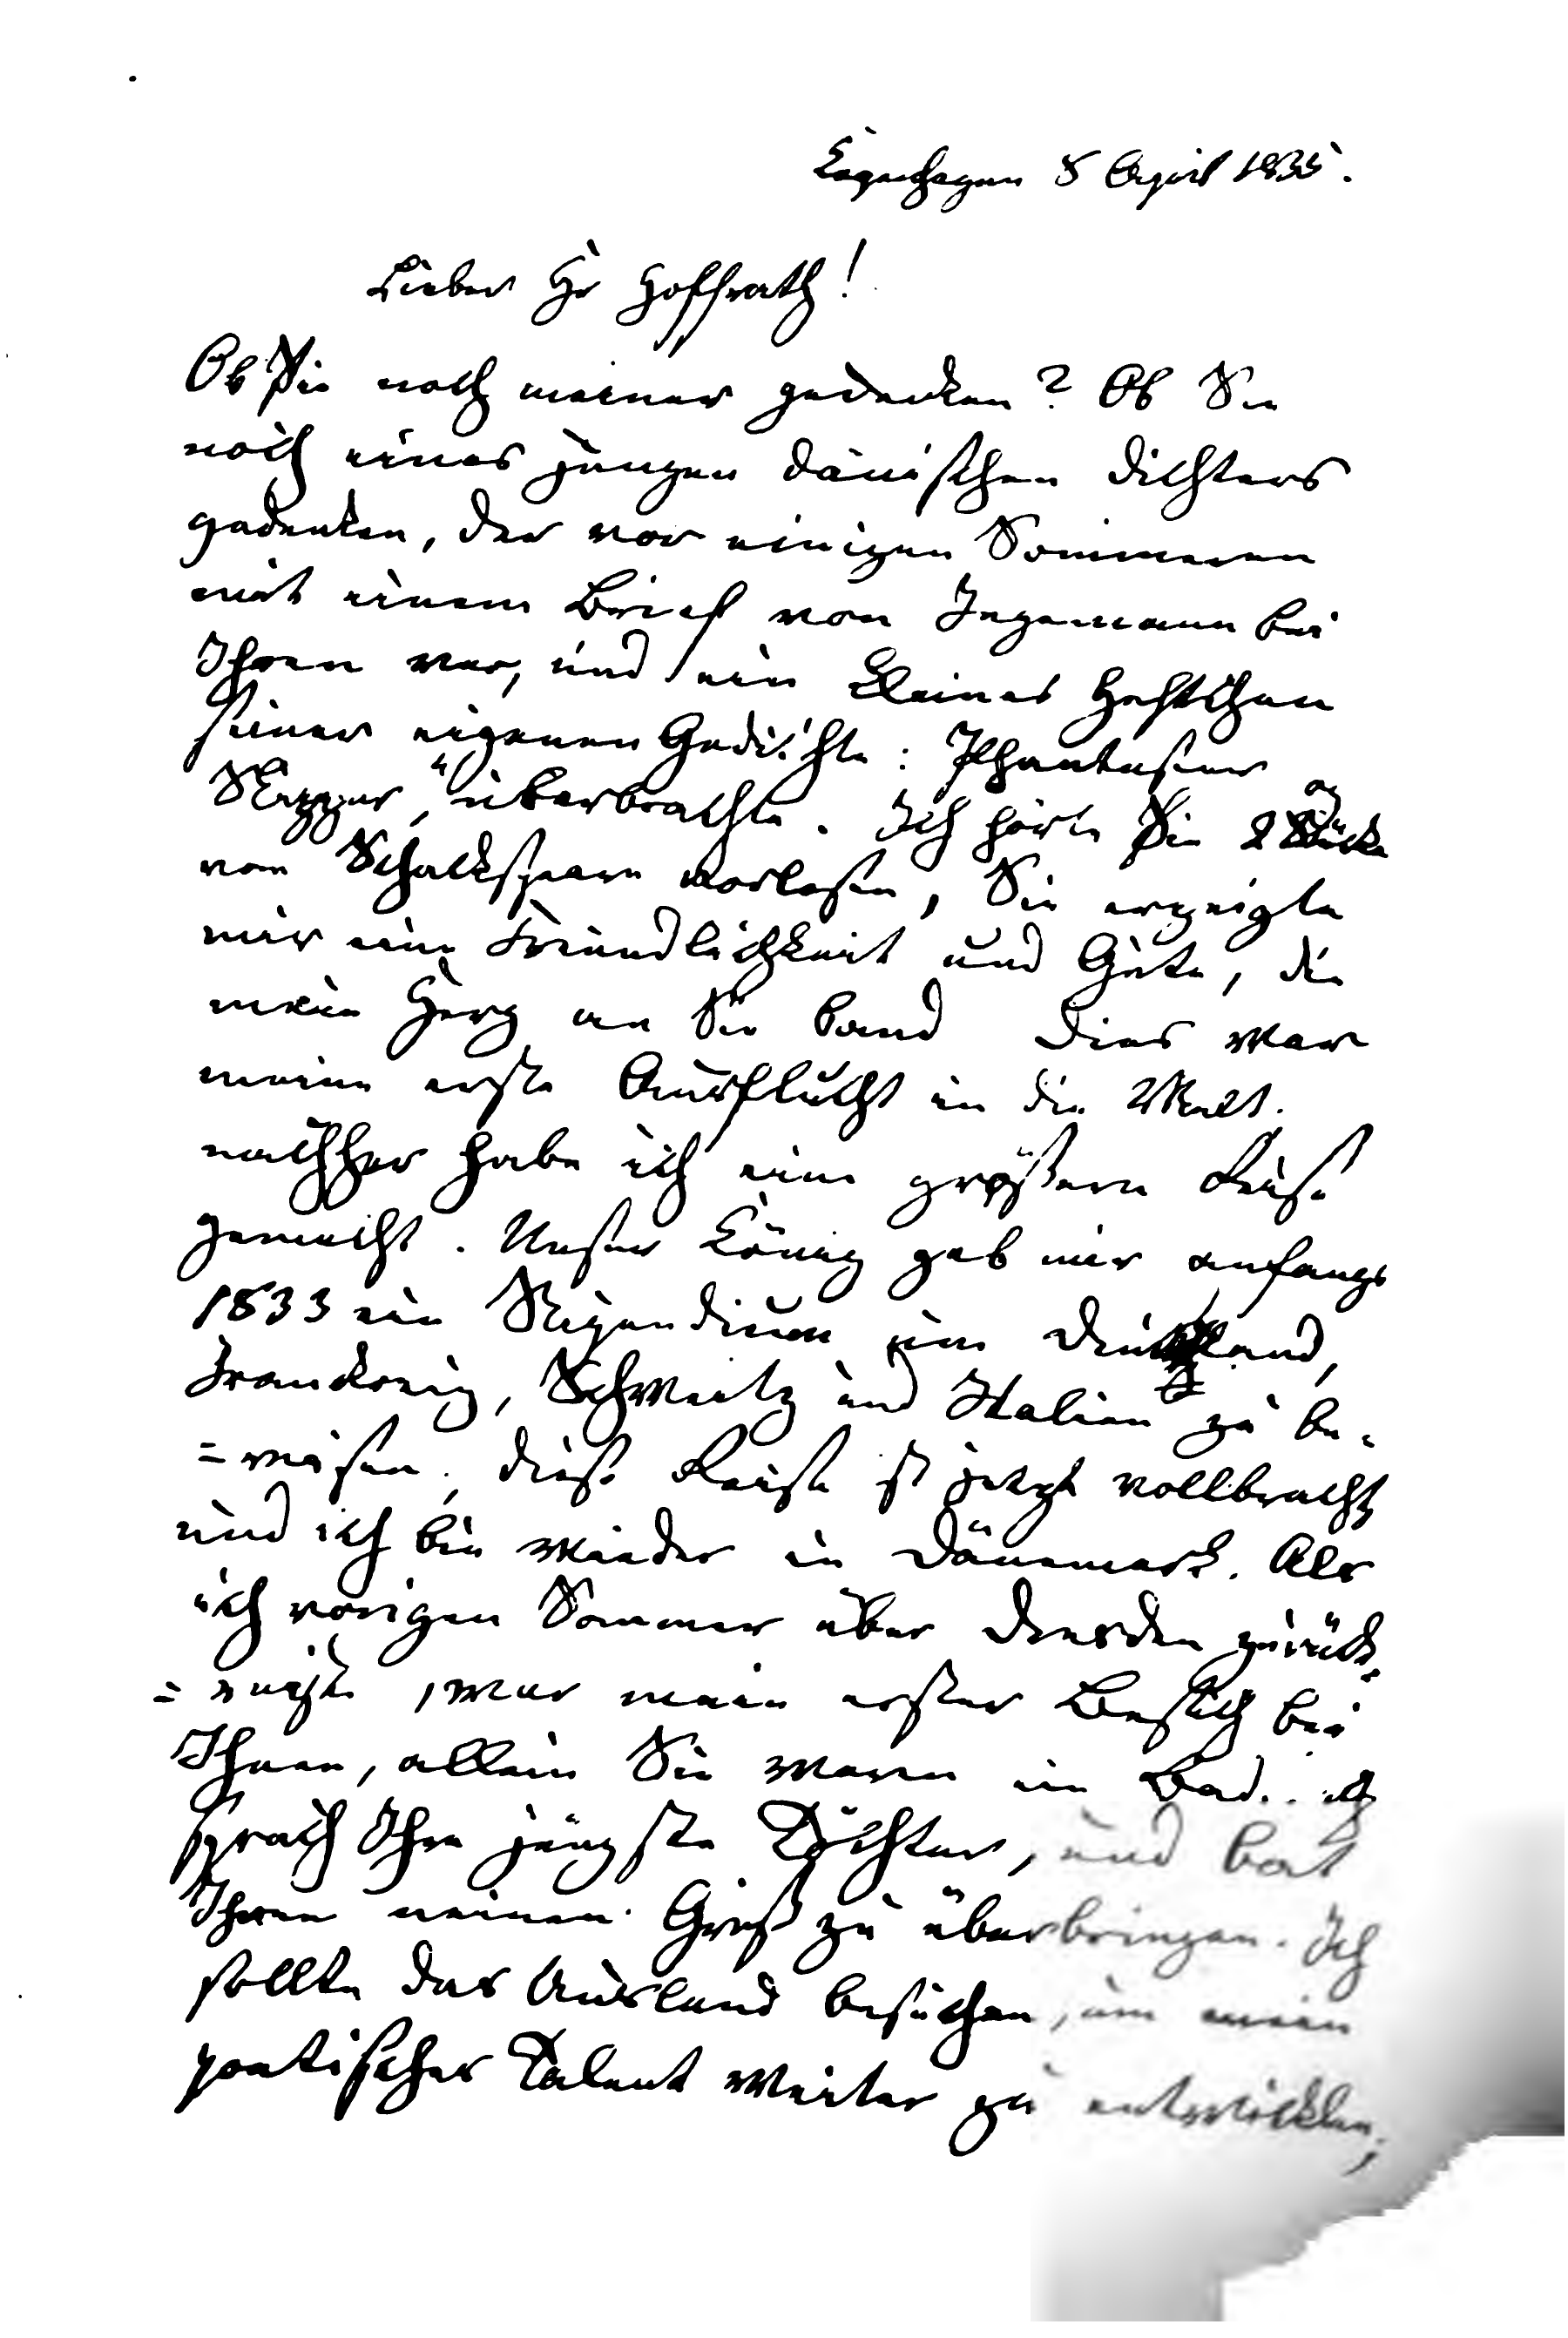 Kopenhagen 8 April 1835.
Lieber Hr Hoffrath!
Ob Sie noch meiner gedencken? Ob Sie
noch eines jungen dänischen Dichters
gedenken, der vor einigen Sommeren
mit einem Brief von Ingemann bei
Ihnen war, und ein kleines Heftchen
seiner eigenen Gedichte: Phantasier og
Skizzer," überbrachte. Ich hörte Sie 2 Stücke
von Schakspeare vorlesen, Sie erzeigte
mir eine Freundlichkeit und Güte, die
mein Herz an Sie band Dies war
meine erste Ausflucht in die Welt.
nachher habe ich eine größern Reise
gemacht. Unser König gab mir anfangs
1833 ein Stipendium um Deutschland,
Franckreig, Schweitz und Italien zu be-
=reisen; diese Reise ist jetzt vollbracht
und ich bin wieder in Dänemark. Als
ich vorigen Sommer über Dresden zurück-
=reiste, war mein erster Besuch bei
Ihnen, allein Sie waren im Bad.. ich
sprach Ihre jüngste Tochter, und bat
Ihnen meinen Gruß zu überbringen. Ich
sollte das Ausland besuchen, um mein
poetisches Talent weiter zu entwicklen;